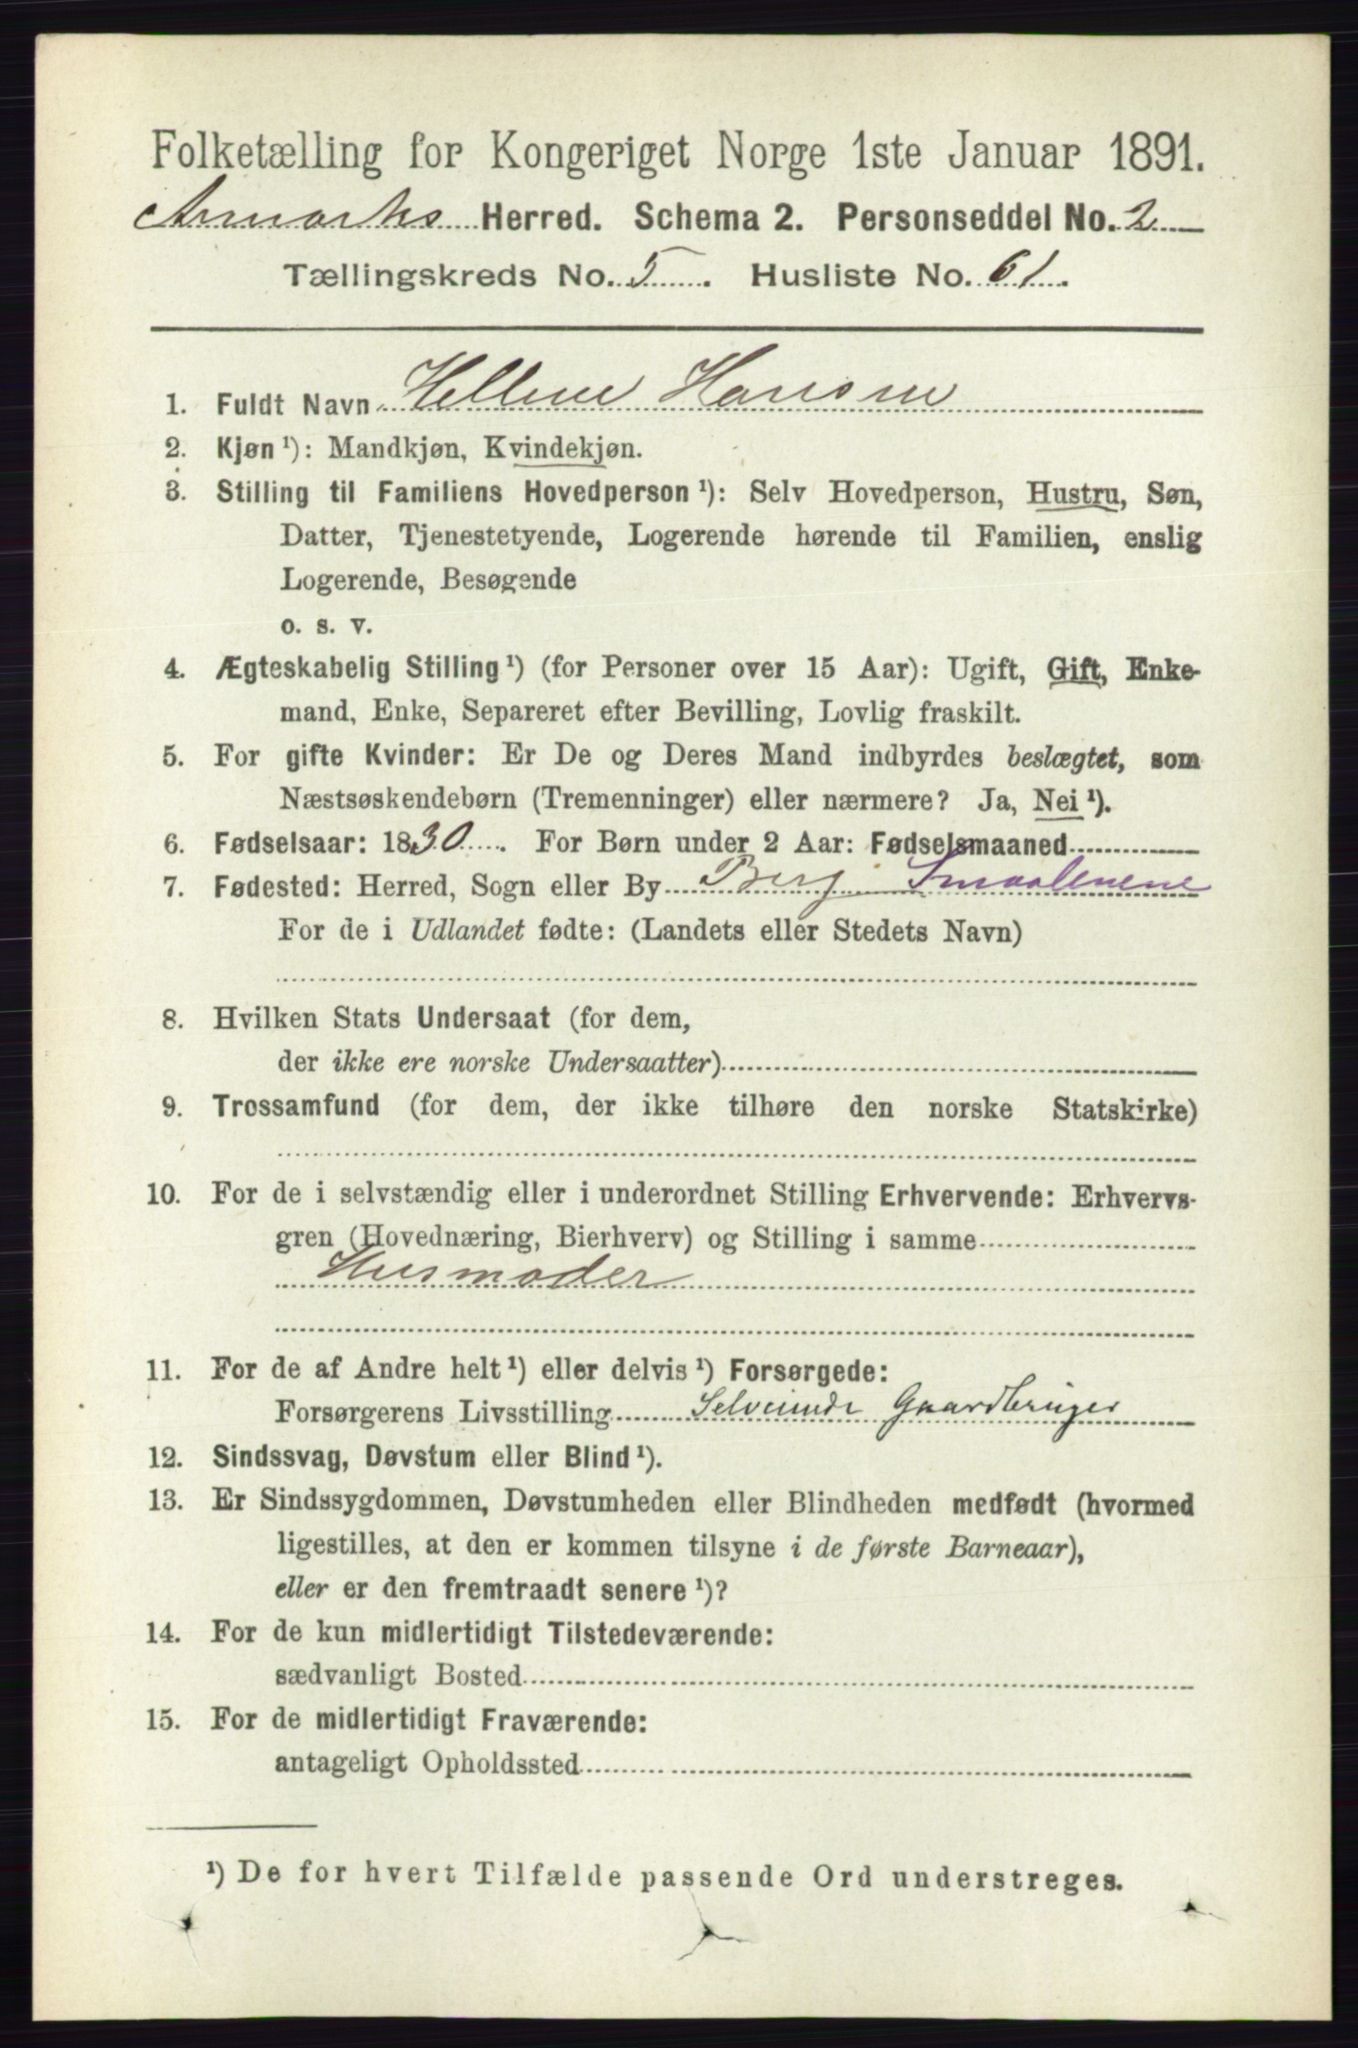 Folketælling for Kongeriget Norge 1ste Januar 1891.
Aremarks Herred. Schema 2. Personseddel No. 2
Tællingskreds No. 5. Husliste No. 61.
1. Fuldt Navn Hellene Hansen
2. Kjøn ¹): Mandkjøn, Kvindekjøn.
3. Stilling til Familiens Hovedperson ¹): Selv Hovedperson, Hustru, Søn,
Datter, Tjenestetyende, Logerende hørende til Familien, enslig
Logerende, Besøgende
o. s. v.
4. Ægteskabelig Stilling ¹) (for Personer over 15 Aar): Ugift, Gift, Enke-
mand, Enke, Separeret efter Bevilling, Lovlig fraskilt.
5. For gifte Kvinder: Er De og Deres Mand indbyrdes beslægtet, som
Næstsøskendebørn (Tremenninger) eller nærmere? Ja, Nei ¹).
6. Fødselsaar: 1830. For Børn under 2 Aar: Fødselsmaaned
7. Fødested: Herred, Sogn eller By Berg Smaalenene
For de i Udlandet fødte: (Landets eller Stedets Navn)
8. Hvilken Stats Undersaat (for dem,
der ikke ere norske Undersaatter)
9. Trossamfund (for dem, der ikke tilhøre den norske Statskirke)
10. For de i selvstændig eller i underordnet Stilling Erhvervende: Erhvervs-
gren (Hovednæring, Bierhverv) og Stilling i samme
Husmoder
11. For de af Andre helt ¹) eller delvis ¹) Forsørgede:
Forsørgerens Livsstilling Selveiende Gaardbruger
12. Sindssvag, Døvstum eller Blind ¹).
13. Er Sindssygdommen, Døvstumheden eller Blindheden medfødt (hvormed
ligestilles, at den er kommen tilsyne i de første Barneaar),
eller er den fremtraadt senere ¹)?
14. For de kun midlertidigt Tilstedeværende:
sædvanligt Bosted
15. For de midlertidigt Fraværende:
antageligt Opholdssted
¹) De for hvert Tilfælde passende Ord understreges.